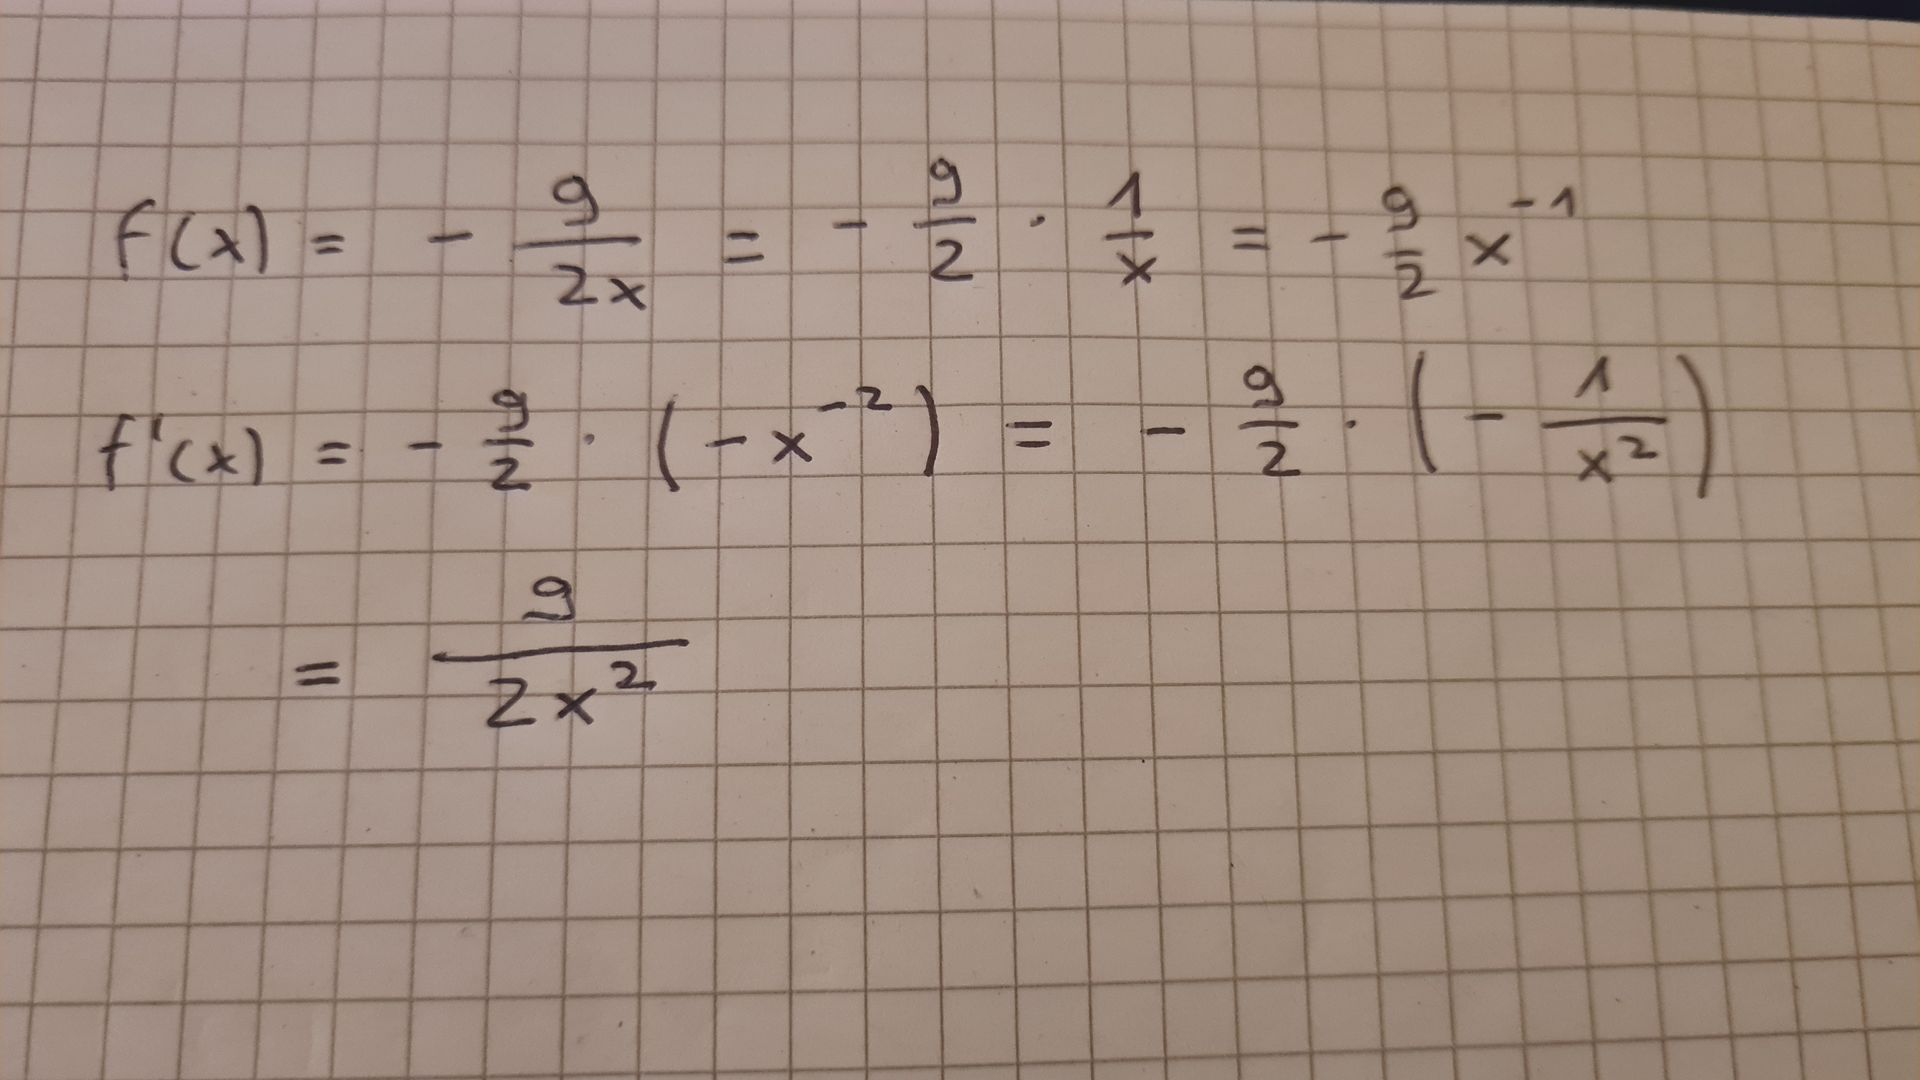 f(x) = - 9/2x = - 9/2 · 1/x = - 9/2 x^-1
f'(x) = - 9/2 · (-x^-2) = - 9/2 · (- 1/x^2)
= 9/2x^2